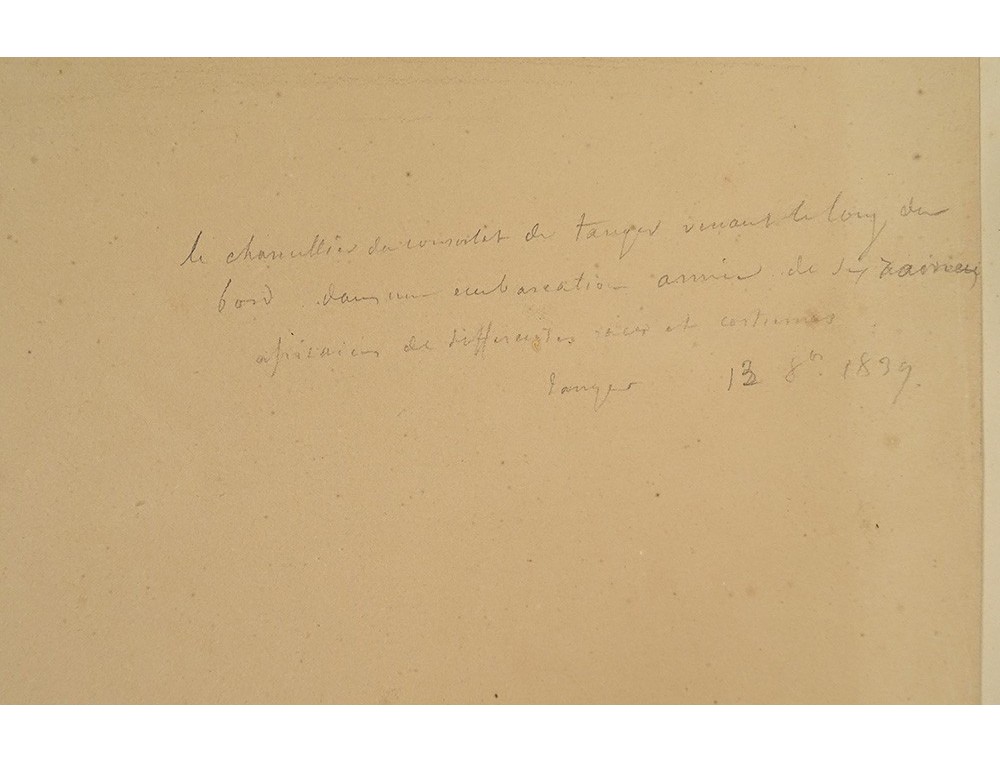 le chancellier du consulat de tanger venant le long du
bord dans une embarcation armée de six
africains de differentes et costumes
Tanger 13 8bre 1839.